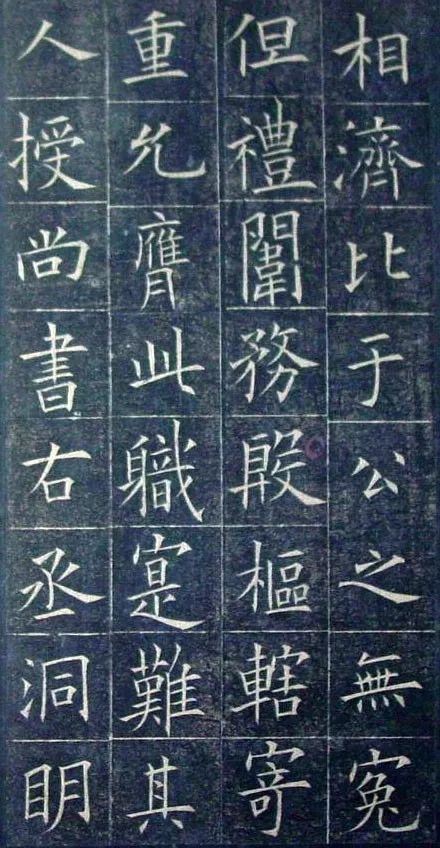 相濟比于公之無冤
但禮闈務殷樞轄寄
重允膺此職寔難其
人授尚書右丞洞明